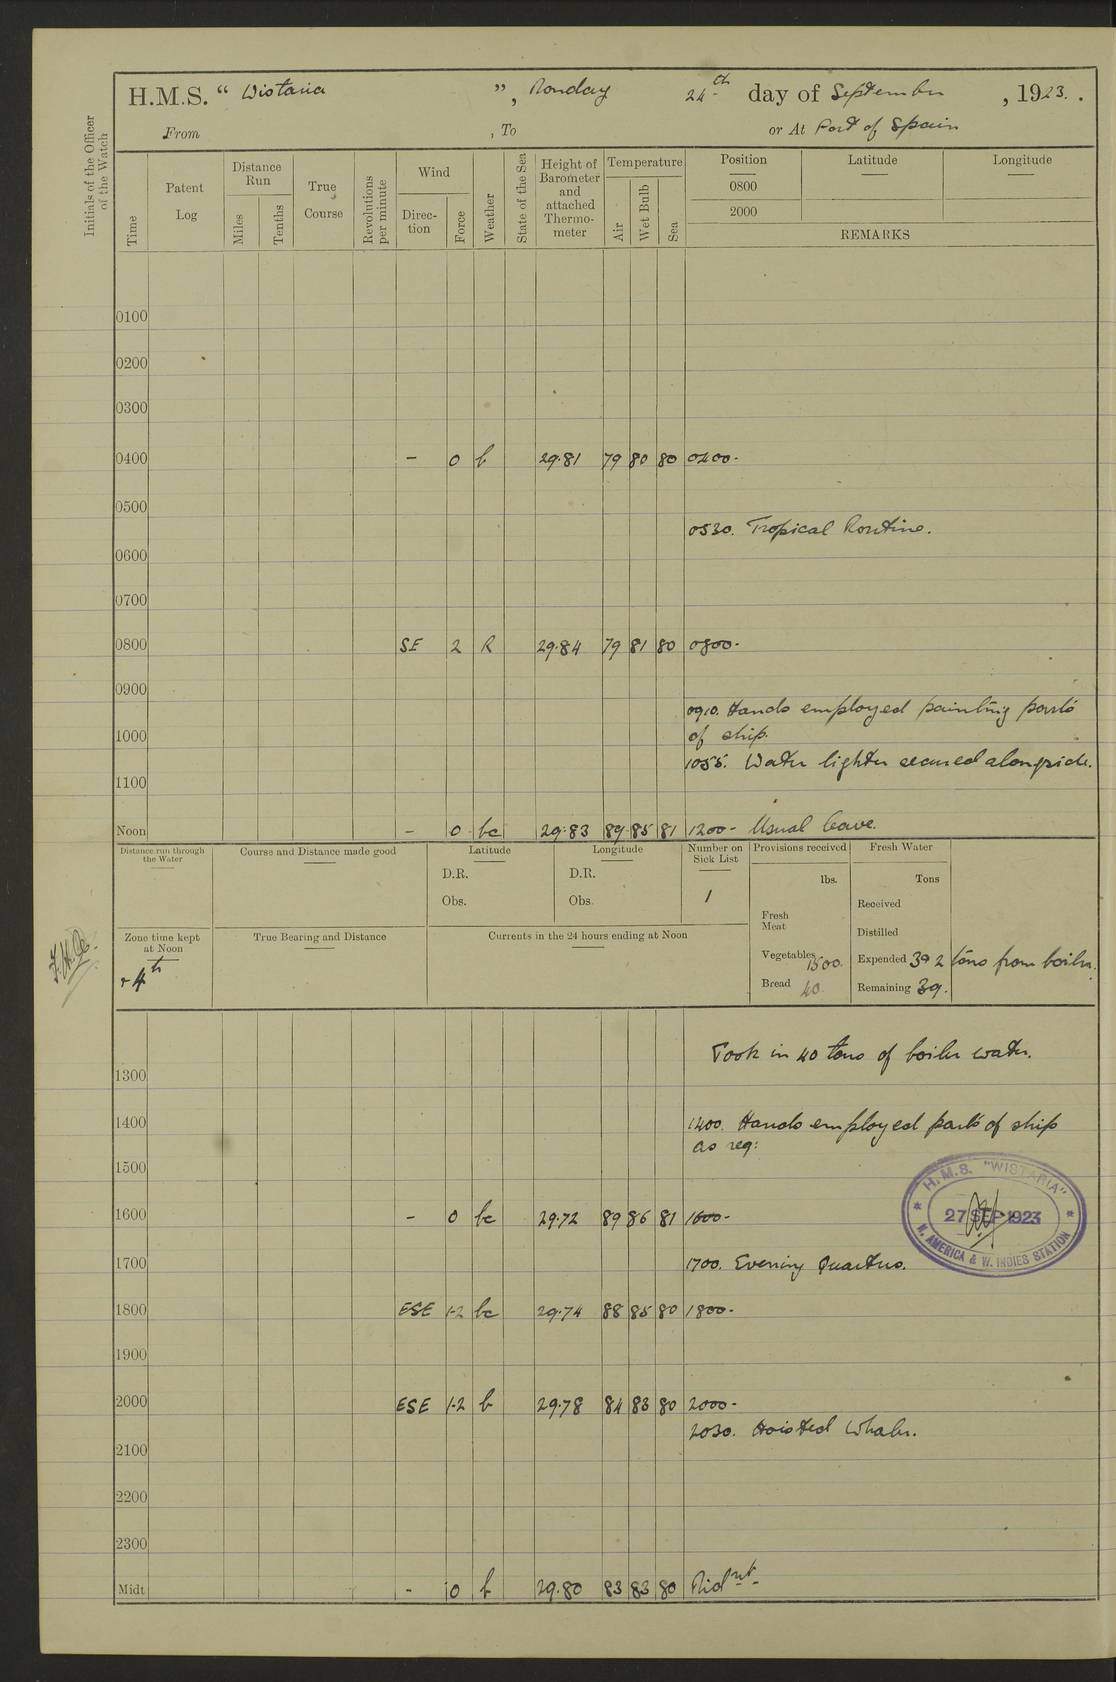 H.M.S. " Wistaria ", Monday 24th day of September, 1923.
From , To or At Port of Spain
Initials of the Officer of the Watch
Time
Patent Log
Distance Run
Miles
Tenths
True Course
Revolutions per minute
Wind
Direc-tion
Force
Weather
State of the Sea
Height of Barometer and attached Thermo-meter
Temperature
Air
Wet Bulb
Sea
Position Latitude Longitude
0800
2000
REMARKS
0100
0200
0300
0400 - 0 b 29.81 79 80 80 0400-
0500
0530. Tropical Routine.
0600
0700
0800 SE 2 R 29.84 79 81 80 0800-
0900
0910. Hands employed painting parts
of ship.
1000
1055. Water lighter secured alongside.
1100
Noon - 0 bc 29.83 89 85 81 1200- Usual leave.
Distance run through the Water
Course and Distance made good
Latitude
D.R.
Obs.
Longitude
D.R.
Obs.
Number on Sick List
1
Provisions received
lbs.
Fresh Meat
Vegetables 1500.
Bread 40.
Fresh Water
Tons
Received
Distilled
Expended 39 2 tons from boiler.
Remaining 39.
Zone time kept at Noon
+ 4th
True Bearing and Distance
Currents in the 24 hours ending at Noon
Took in 40 tons of boiler water.
1300
1400 1400. Hands employed parts of ship
as req:
1500
1600 - 0 bc 29.72 89 86 81 1600-
H.M.S. "WISTARIA"
27 SEP 1923
N. AMERICA & W. INDIES STATION
1700 1700. Evening Quarters.
1800 ESE 1-2 bc 29.74 88 85 80 1800-
1900
2000 ESE 1-2 b 29.78 84 83 80 2000-
2030. Hoisted Whaler.
2100
2200
2300
Midt - 0 b 29.80 83 83 80 Midnt-